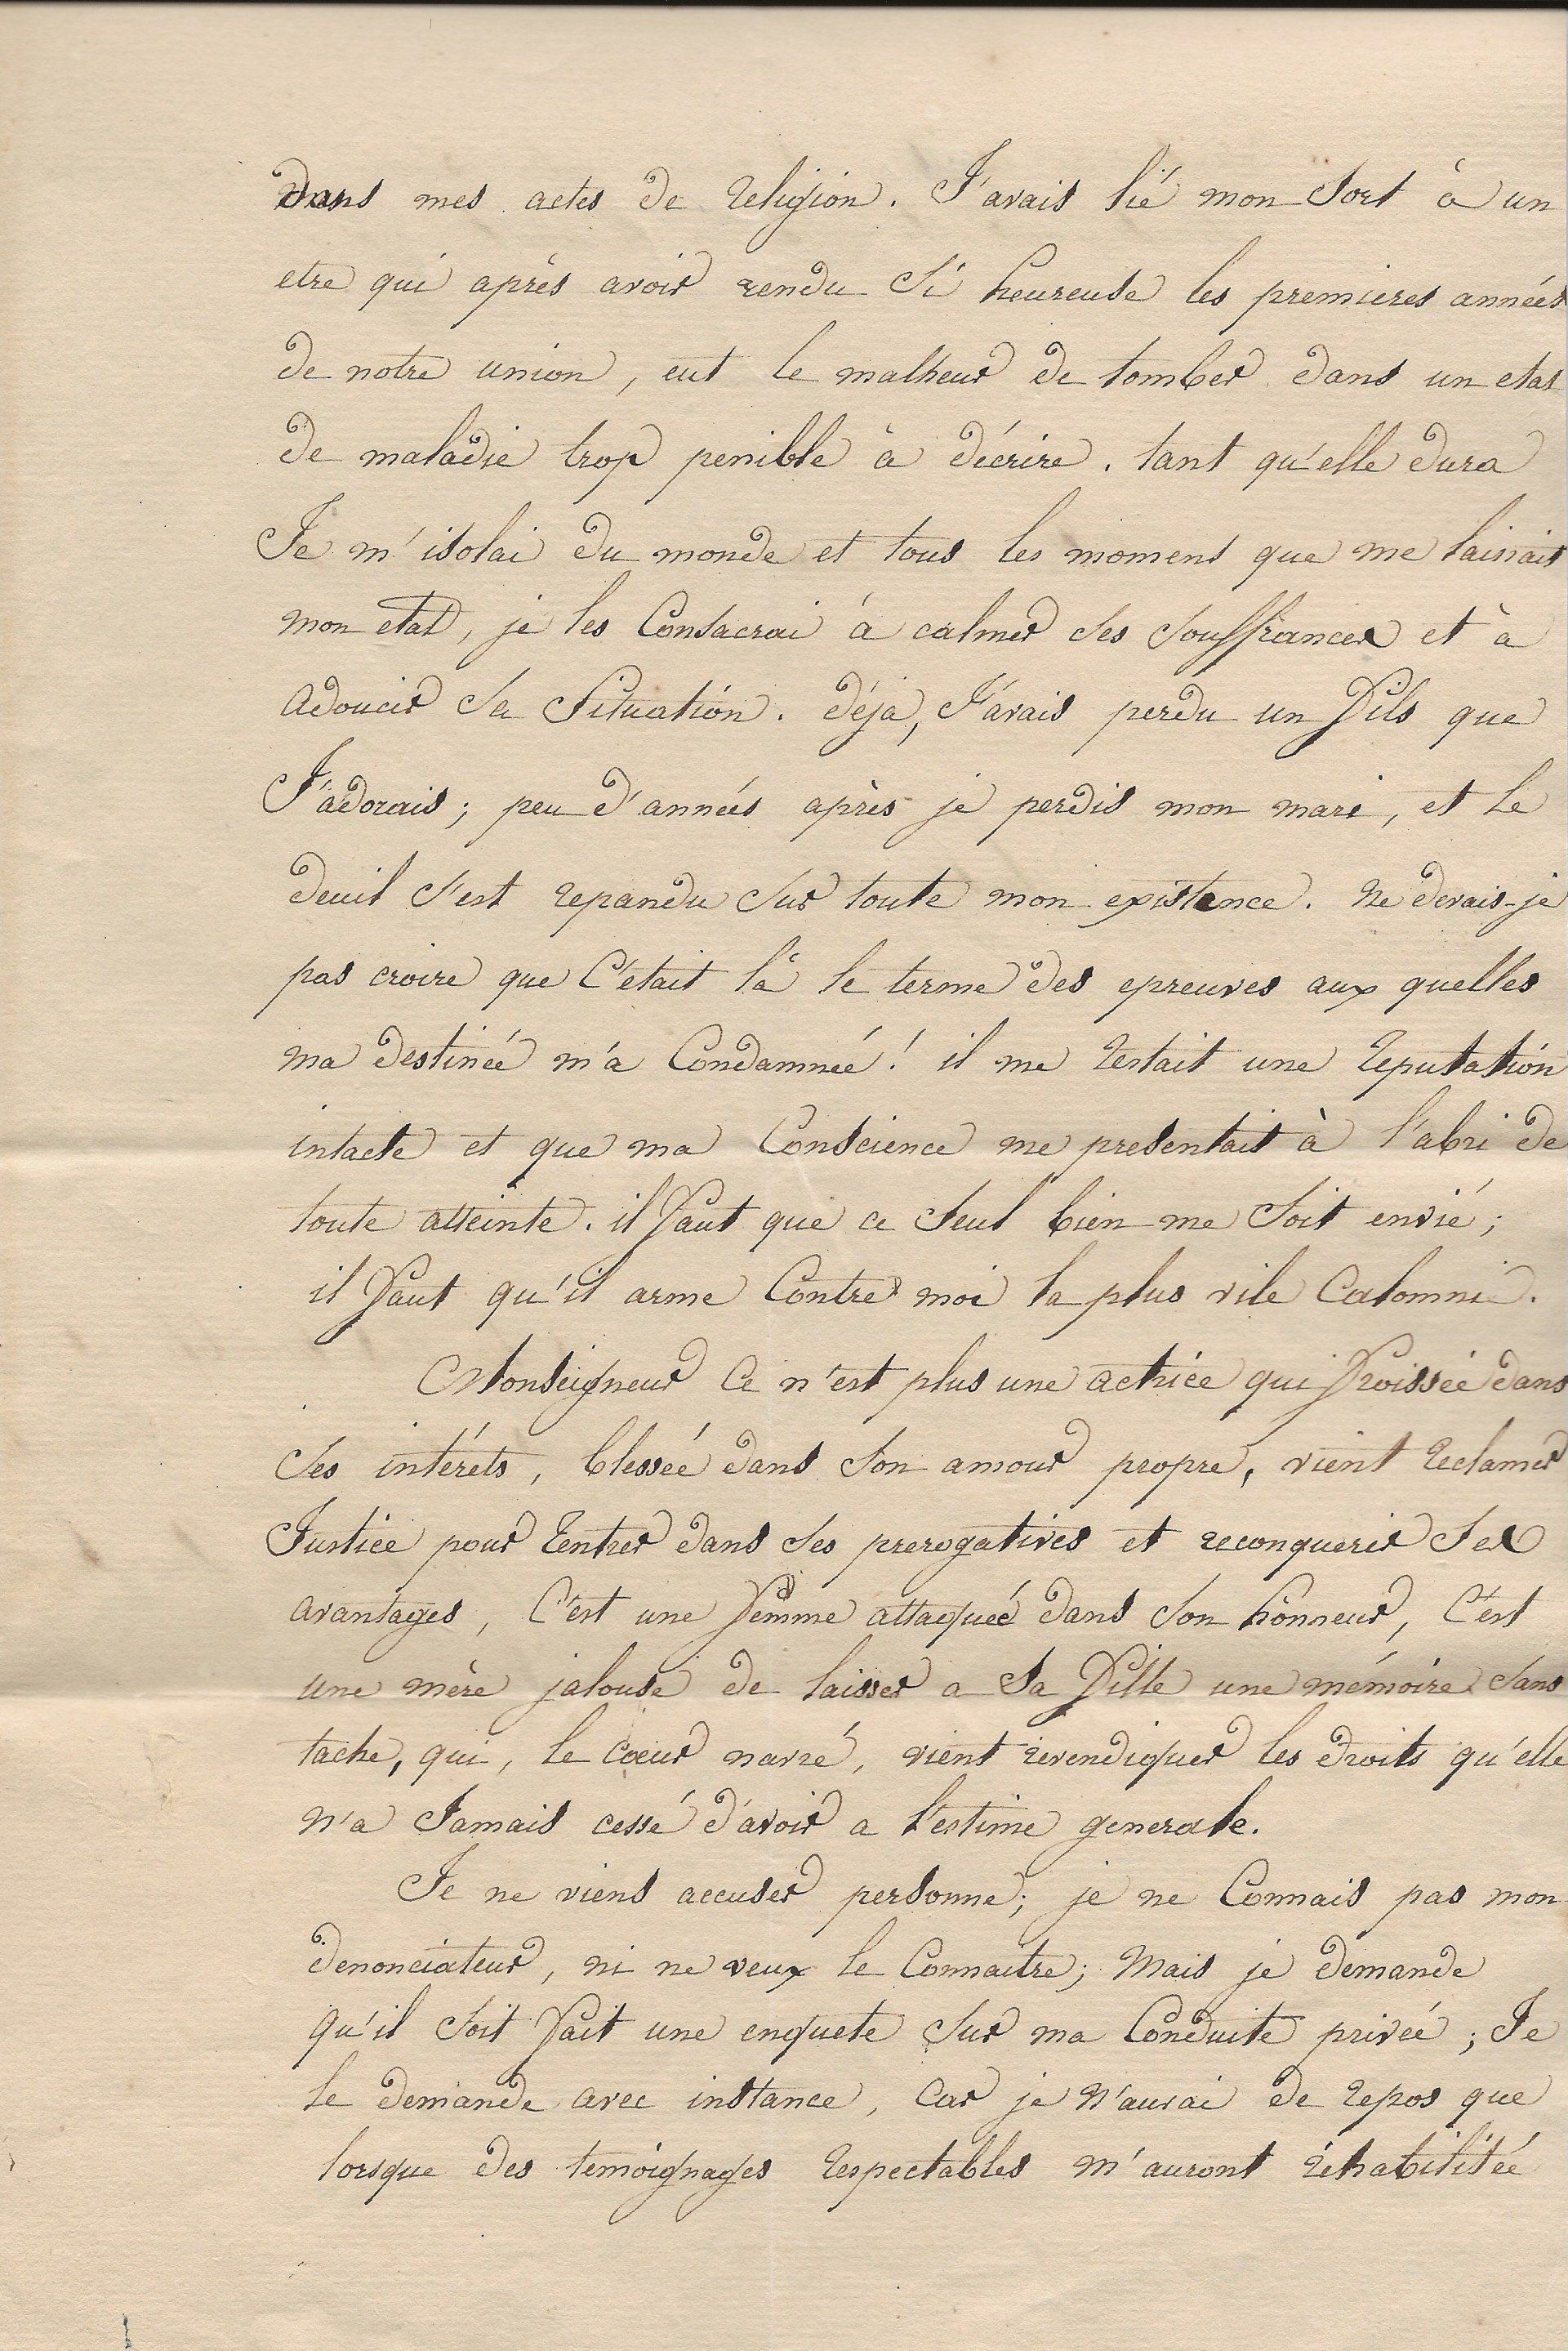 dans mes actes de religion. J'avais lié mon sort à un
etre qui après avoir rendu si heureuse les premieres années
de notre union, eut le malheur de tomber dans un etat
de maladie trop penible à décrire. tant qu'elle dura
Je m'isolai du monde et tous les momens que me laissait
mon etat, je les Consacrai à calmer ses souffrances et à
adoucir sa situation. déja, J'avais perdu un fils que
J'adorais; peu d'années après je perdis mon mari, et le
deuil s'est repandu sur toute mon existence. Ne devais-je
pas croire que C'était là le terme des epreuves aux quelles
ma destinée m'a Condamnée! il me restait une reputation
intacte et que ma Conscience me presentait à l'abri de
toute atteinte. il faut que ce seul bien me soit envié;
il faut qu'il arme Contre moi la plus vile Calomnie.
Monseigneur Ce n'est plus une actrice qui froissée dans
ses intérets, blessée dans son amour propre, vient reclamer
Justice pour rentrer dans ses prerogatives et reconquerir ses
avantages, C'est une femme attaquée dans son honneur, C'est
une mère jalouse de laisser a sa fille une mémoire sans
tache, qui, le cœur navré, vient revendiquer les droits qu'elle
n'a Jamais cessé d'avoir a l'estime generale.
Je ne viens accuser personne; je ne Connais pas mon
denonciateur, ni ne veux le Connaitre; Mais je demande
qu'il soit fait une enquete sur ma Conduite privée; Je
le demande avec instance, Car je N'aurai de repos que
lorsque des temoignages respectables m'auront réhabilitée